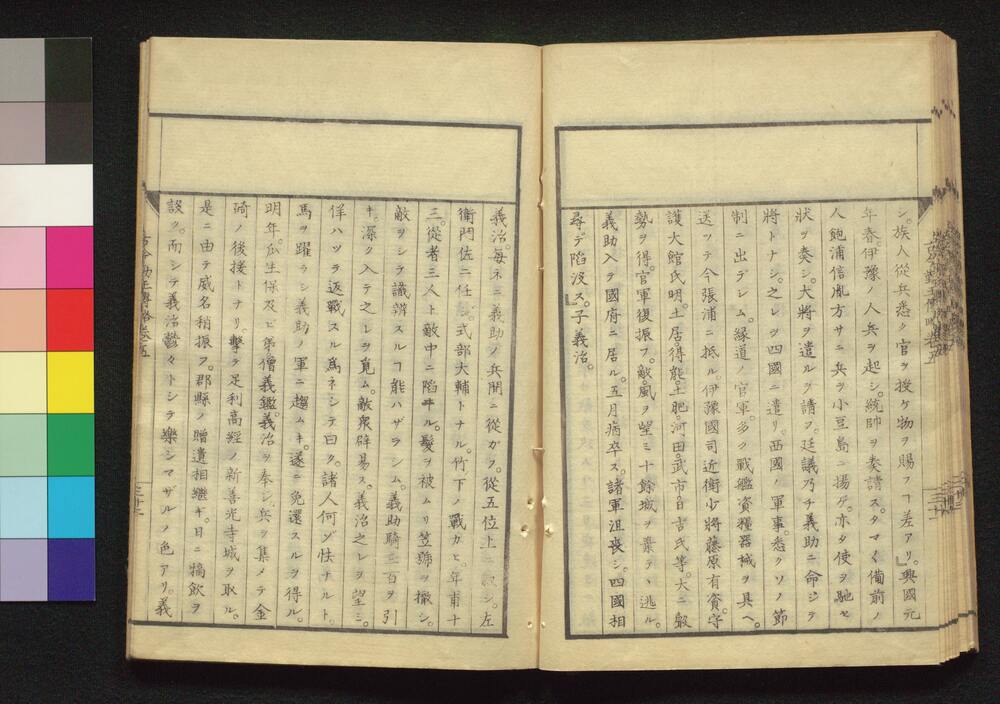 シ。族人從兵悉ク官ヲ授ケ物ヲ賜フヿ差アリ。』興國元
年春伊豫ノ人兵ヲ起シ。統帥ヲ奏請ス。タマ〱備前ノ
人飽浦信胤方サニ兵ヲ小豆島ニ揚ゲ。亦タ使ヲ馳セ
狀ヲ奏シ。大將ヲ遣ルヲ請フ。廷議乃チ義助ニ命ジテ
將トナシ。之レヲ四國ニ遣リ。西國ノ軍事。悉クソノ節
制ニ出デシム。緣道ノ官軍。多ク戰艦資糧器械ヲ具ヘ。
送ツテ今張浦ニ抵ル。伊豫國司近衛少將藤原有資。守
護大館氏明。土居得能。土肥。河田。武市。日吉氏等。大ニ
勢ヲ得。官軍復振フ。敵風ヲ望ミ十餘城ヲ棄テヽ逃ル。
義助入テ國府ニ居ル。五月病卒ス。諸軍沮喪シ。四國相
尋デ陷沒ス。』子義治。
義治。每ネニ義助ノ兵間ニ從ガフ。從五位上ニ叙シ。左
衛門佐ニ任シ。式部大輔トナル。竹下ノ戰カヒ。年甫十
三。從者三人ト敵中ニ陷ヰル。髮ヲ被ムリ笠號ヲ撤シ。
敵ヲシテ識辨スルヿ能ハザラシム。義助騎三百ヲ引
キ。深ク入テ之レヲ覓ム。敵衆辟易ス。義治之レヲ望ミ。
佯ハツラ返戰スル爲ネシテ曰ク。諸人何ゾ怯ナルト。
馬ヲ躍ラシ義助ノ軍ニ趨ムキ。遂ニ免還スルヲ得ル。
明年。瓜生保及ビ弟僧義鑑。義治ヲ奉シ。兵ヲ集メテ金
碕ノ後援トナリ。擊ヲ足利高經ノ新善光寺城ヲ取ル。
是ニ由テ威名稍振フ。郡縣ノ贈遺相繼ギ。日ニ犒飲ヲ
設ク。而シテ義治鬱々トシテ樂シマザルノ色アリ。義